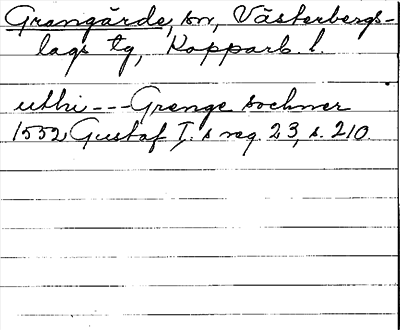 Grangärde, sn, Västerbergs-
lags tg, Kopparb. l.
uthi --- Grenge sochner
1552 Gustaf I:s reg. 23, s. 210.